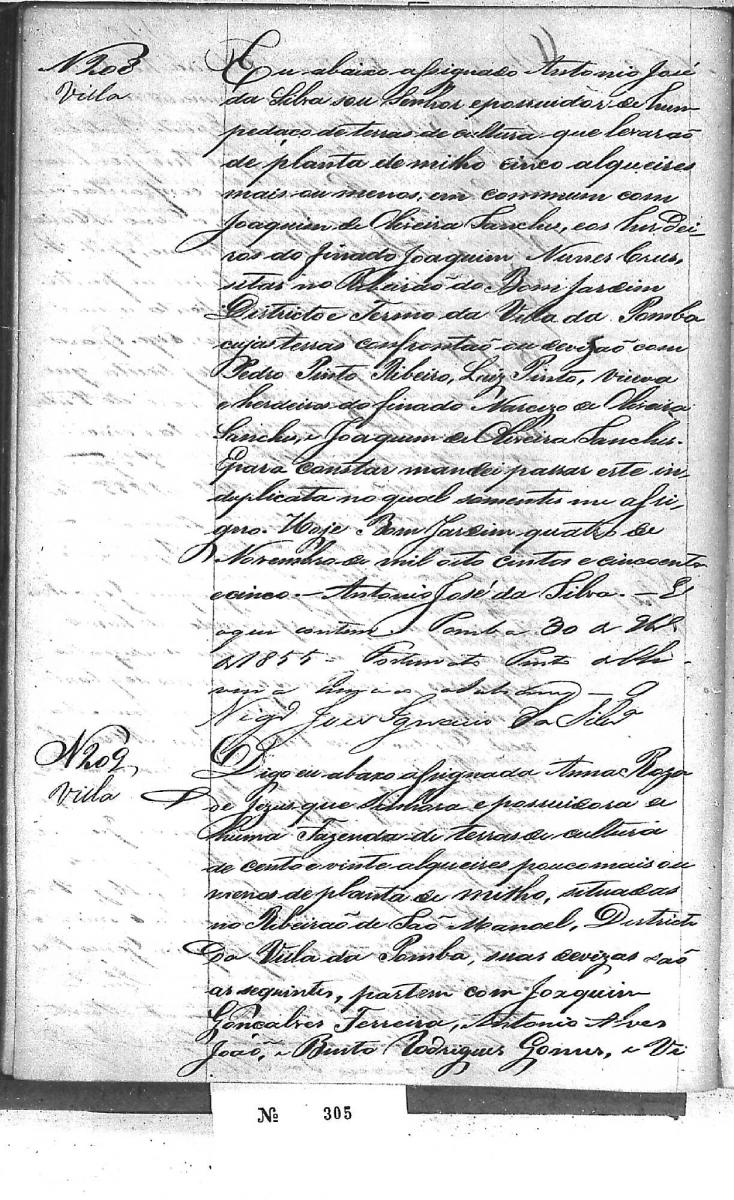 N 208
Villa
Eu abaixo assignado Antonio José
da Silva sou Senhor e possuidor de hum
pedaço de terras de cultura que levaraõ
de planta de milho cinco alqueires
mais ou menos, em commum com
Joaquim de Oliveira Sanches, e os herdei-
ros do finado Joaquim Nunes
sitas no Ribeiraõ do Bom jardim
Districto e Termo da Villa da Pomba
cujas terras confrontaõ ou devizaõ com
Pedro Pinto Ribeiro, Luiz Pinto, viuva
e herdeiros do finado Narcizo de Oliveira
Sanches, e Joaquim de Oliveira Sanches.
E para constar mandei passar este in
duplicata no qual somente me assi-
gno. Hoje Bom Jardim quatro de
Novembro de mil oito centos e cincoenta
e cinco. — Antonio José da Silva. — Es
aqui contem. Pomba 30 de
de 1855 = Fortunato Pinto de Oli-
veira
Vigr José Ignacio da Silva
N 209
Villa
Digo eu abaxo assignada Anna Roza
de Jezus que Senhora e possuidora de
huma Fazenda de terras de cultura
de cento e vinte alqueires pouco mais ou
menos de planta de milho, situadas
no Ribeiraõ de Saõ Manoel, Districto
da Villa da Pomba, suas devizas saõ
as seguintes, partem com Joaquim
Gonçalves Ferreira, Antonio Alves
Joaõ, e Bento Rodrigues Gomes, e Vi
Nº 305